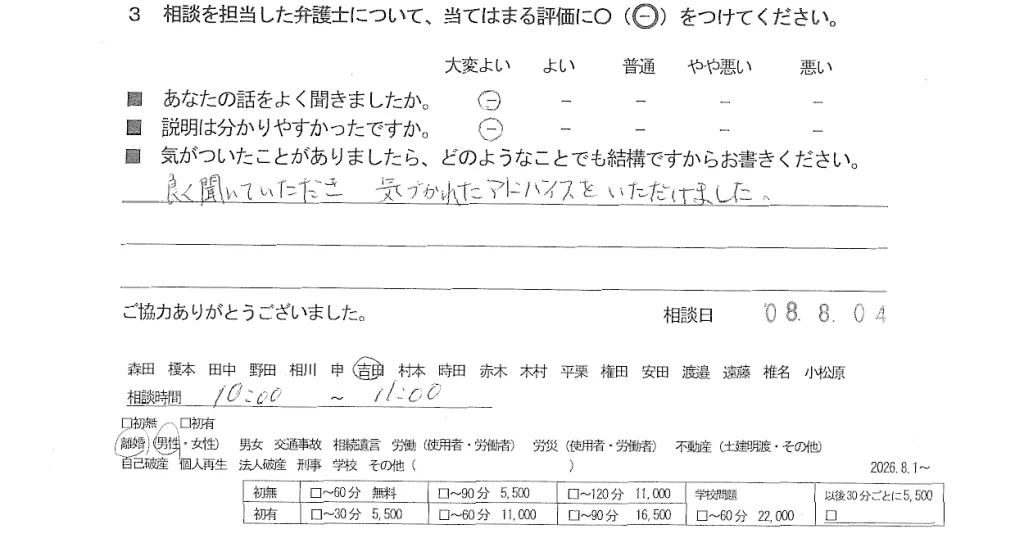 3 相談を担当した弁護士について、当てはまる評価に○(㊀)をつけてください。
大変よい よい 普通 やや悪い 悪い
■ あなたの話をよく聞きましたか。 ㊀ － － － －
■ 説明は分かりやすかったですか。 ㊀ － － － －
■ 気がついたことがありましたら、どのようなことでも結構ですからお書きください。
良く聞いていただき 気づかれたアドバイスをいただけました。
ご協力ありがとうございました。 相談日 '08.8.04
森田 榎本 田中 野田 相川 申 吉田 村本 時田 赤木 木村 平栗 権田 安田 渡邉 遠藤 椎名 小松原
相談時間 10:00 ～ 11:00
□初無 □初有
離婚(男性・女性) 男女 交通事故 相続遺言 労働(使用者・労働者) 労災(使用者・労働者) 不動産(土建明渡・その他)
自己破産 個人再生 法人破産 刑事 学校 その他( ) 2026.8.1～
初無 □～60分 無料 □～90分 5,500 □～120分 11,000 学校問題 以後30分ごとに5,500
初有 □～30分 5,500 □～60分 11,000 □～90分 16,500 □～60分 22,000 □